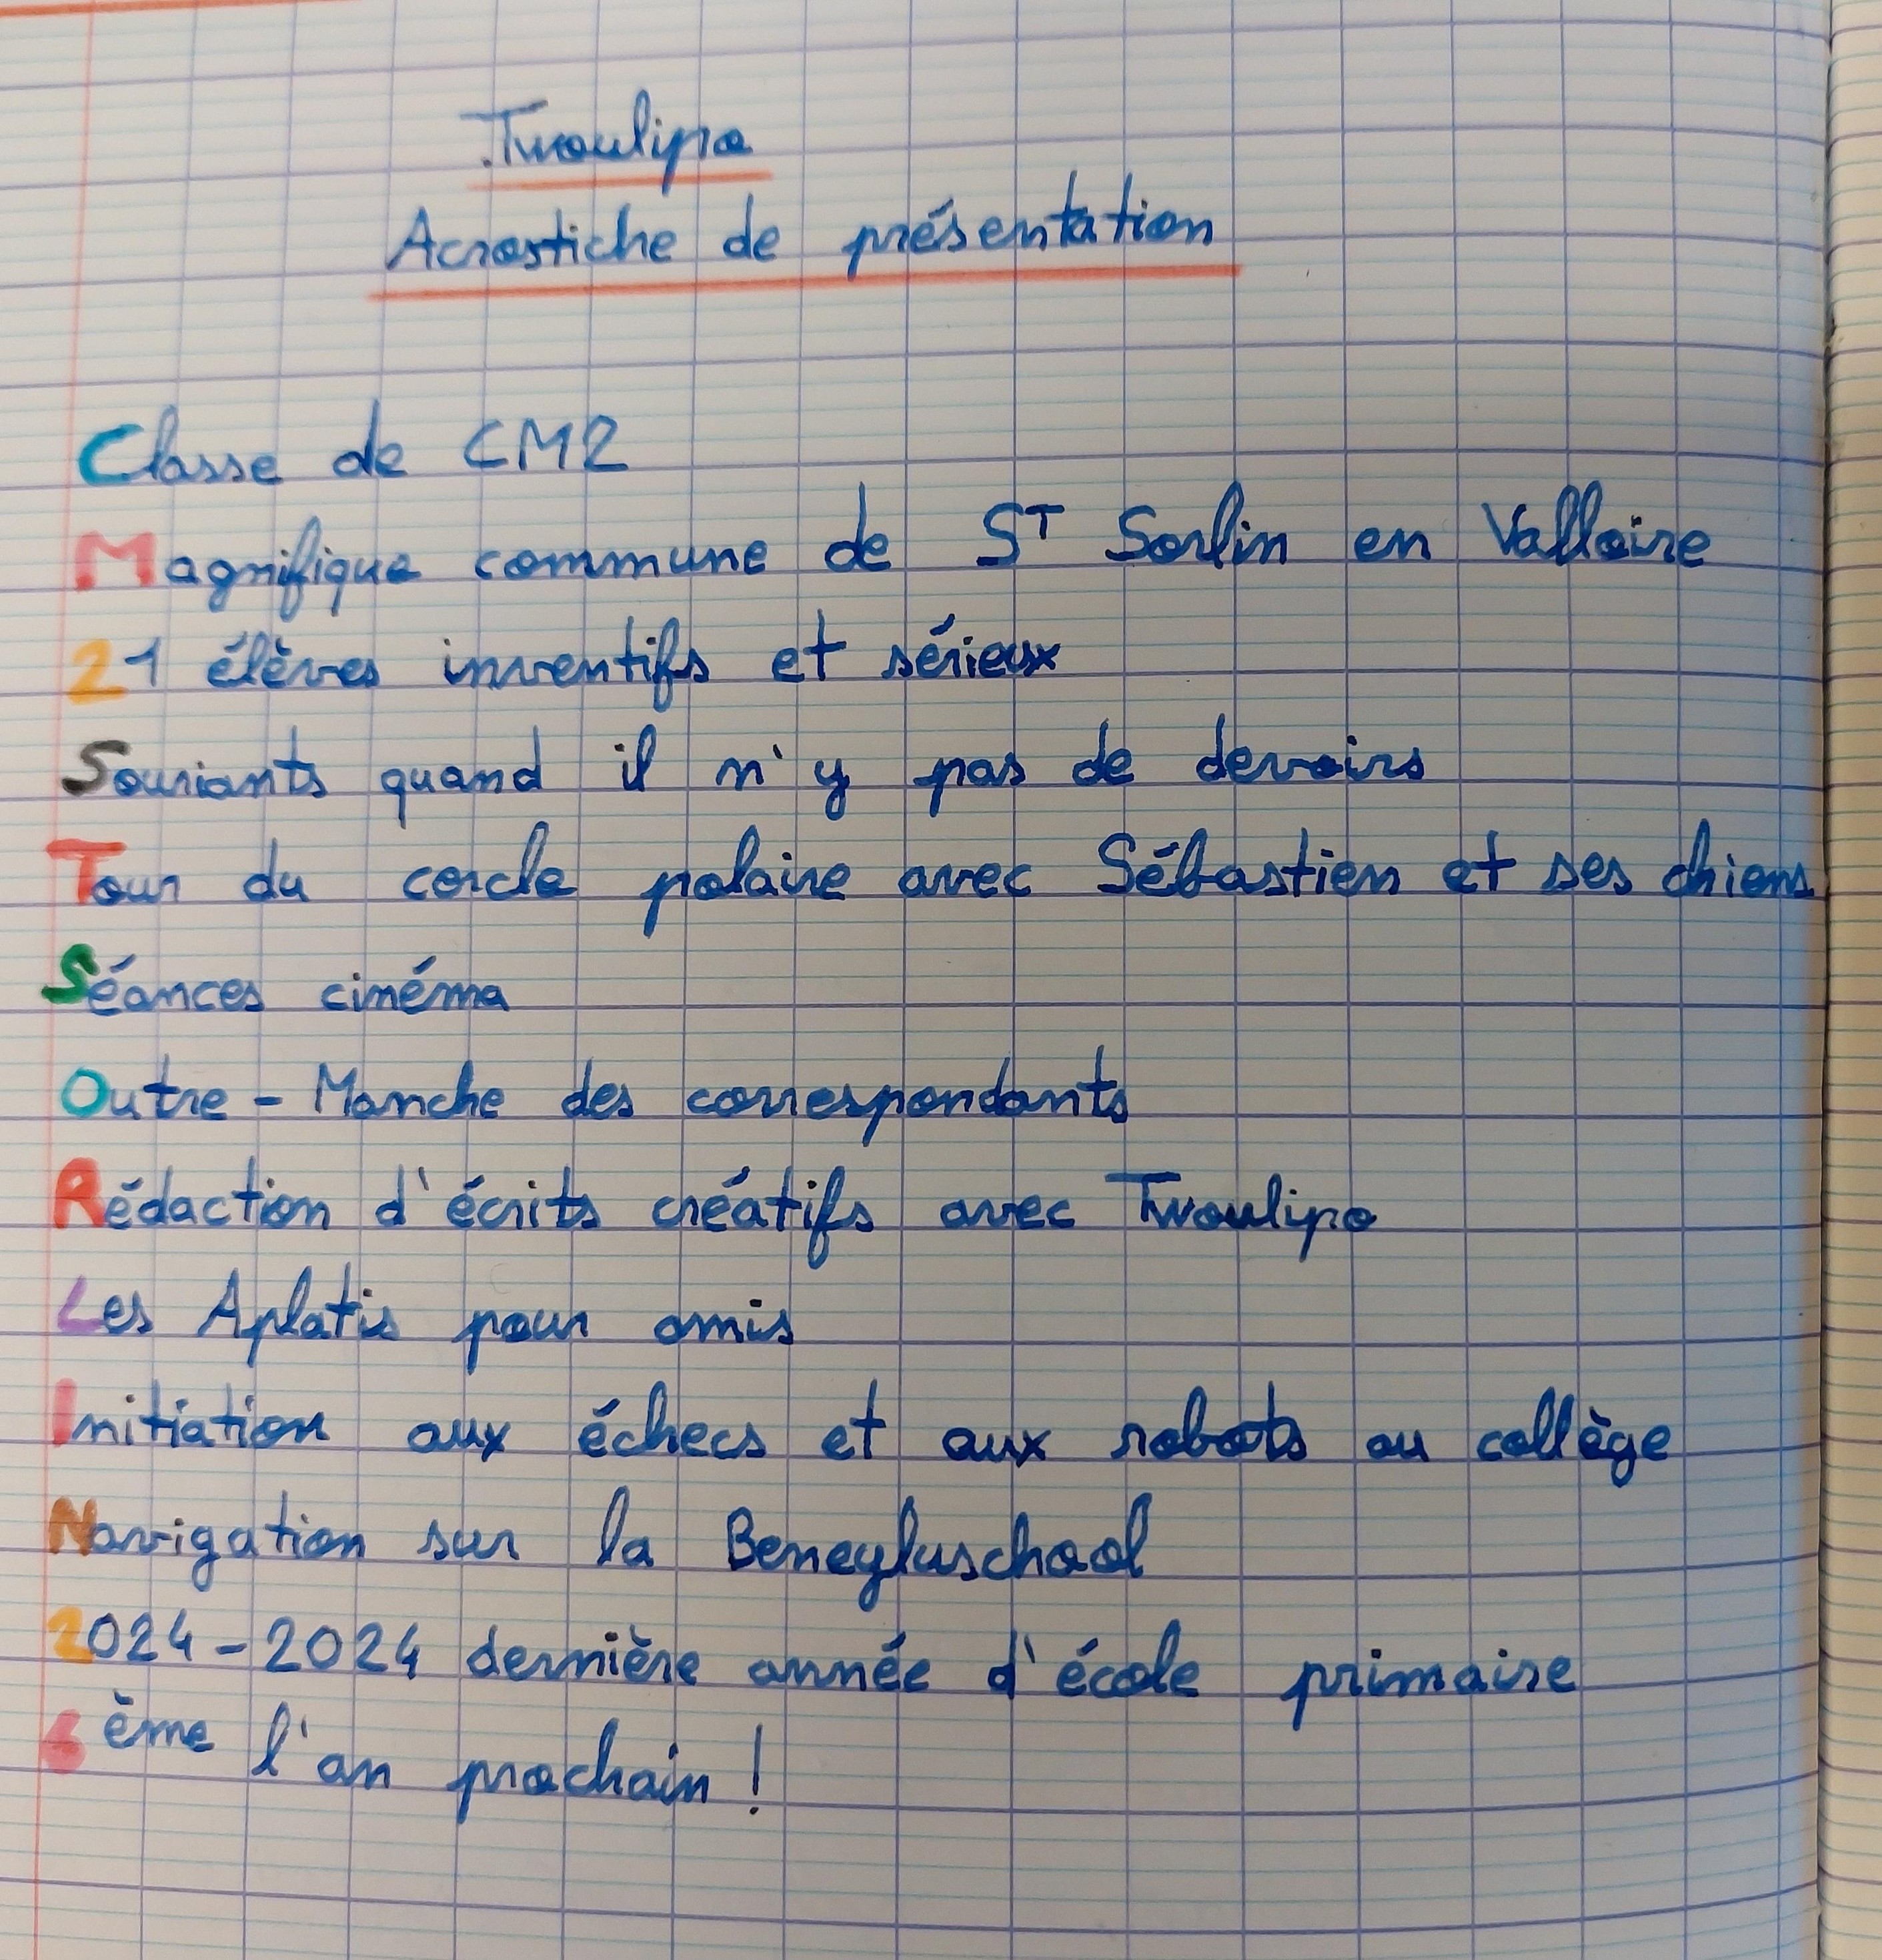 Twoulipo
Acrostiche de présentation
Classe de CM2
Magnifique commune de ST Sorlin en Valloire
21 élèves inventifs et sérieux
Souriants quand il n'y pas de devoirs
Tour du cercle polaire avec Sébastien et ses chiens
Séances cinéma
Outre-Manche des correspondants
Rédaction d'écrits créatifs avec Twoulipo
Les Aplatis pour amis
Initiation aux échecs et aux robots au collège
Navigation sur la Beneyluschool
2024-2024 dernière année d'école primaire
6ème l'an prochain !